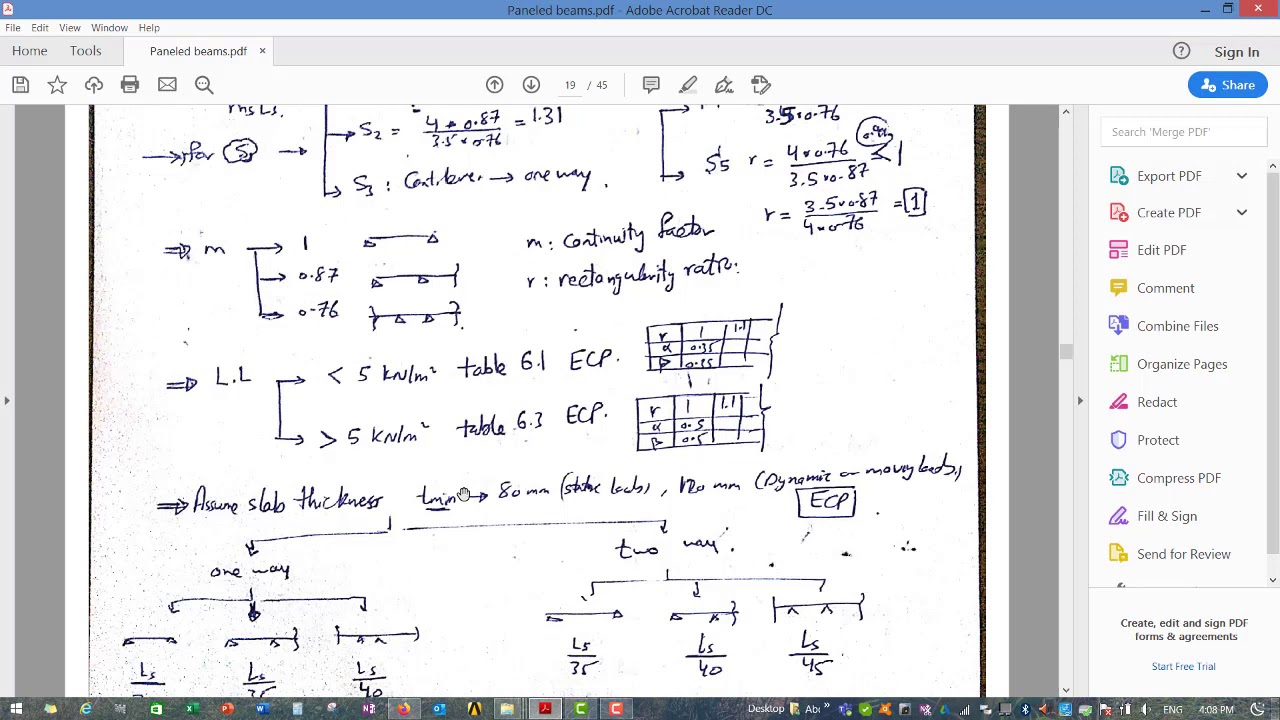 Paneled beams.pdf - Adobe Acrobat Reader DC
File Edit View Window Help
Home Tools Paneled beams.pdf × Sign In
19 / 45 Share
→ for S →
→ S2 = 4*0.87 / 3.5*0.76 = 1.31
→ S3 : Cantilever → one way.
3.5*0.76
S5 r = 4*0.76 / 3.5*0.87 < 1
r = 3.5*0.87 / 4*0.76 = 1
⇒ m → 1
→ 0.87
→ 0.76
m : Continuity factor
r : rectangularity ratio:
⇒ L.L → < 5 kN/m² table 6.1 ECP.
r 1 1.1
α 0.35
β 0.35
→ > 5 kN/m² table 6.3 ECP.
r 1 1.1
α 0.5
β 0.5
⇒ Assume slab thickness tmin → 80 mm (static loads), 120 mm (Dynamic or moving loads)
ECP
one way
two way.
Ls
Ls
Ls/40
Ls/35
Ls/40
Ls/45
Search 'Merge PDF'
Export PDF
Create PDF
Edit PDF
Comment
Combine Files
Organize Pages
Redact
Protect
Compress PDF
Fill & Sign
Send for Review
Create, edit and sign PDF
forms & agreements
Start Free Trial
Desktop 4:08 PM